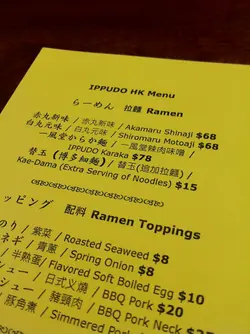 IPPUDO HK Menu
らーめん 拉麵 Ramen
赤丸新味 / 赤丸新味 / Akamaru Shinaji $68
白丸元味 / 白丸元味 / Shiromaru Motoaji $68
一風堂からか麵 / 一風堂辣肉味噌 /
IPPUDO Karaka $78
替玉 (博多細麵) / 替玉(追加拉麵)
Kae-Dama (Extra Serving of Noodles) $15
ッピング 配料 Ramen Toppings
のり / 紫菜 / Roasted Seaweed $8
ネギ / 青蔥 / Spring Onion $8
/ 半熟蛋/ Flavored Soft Boiled Egg $10
シュー / 日式叉燒 / BBQ Pork $20
シュー / 豬頸肉 / BBQ Pork Neck
/ 豚角煮 / Simmered Pork